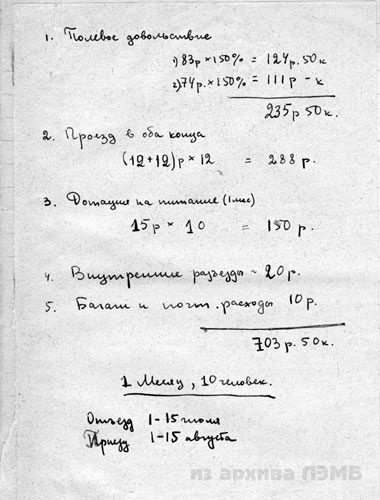 1. Полевое довольствие
1) 83р × 150% = 124р. 50к
2) 74р. × 150% = 111р - к
235р 50к.
2. Проезд в оба конца
(12+12)р × 12 = 288 р.
3. Дотация на питание (1 мес)
15р × 10 = 150 р.
4. Внутренние разъезды - 20р.
5. Багаж и почт. расходы 10 р.
703 р. 50к.
1 Месяц, 10 человек.
Отъезд 1-15 июля
Приезд 1-15 августа
из архива ПЭМБ